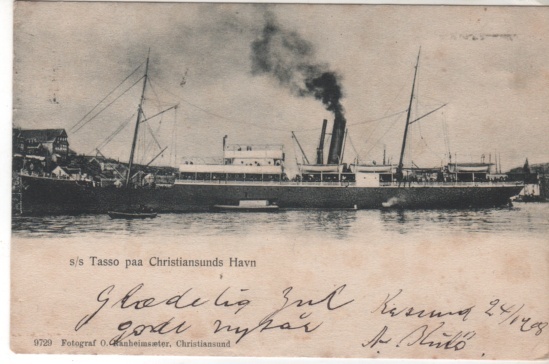 s/s Tasso paa Christiansunds Havn
Glædelig Jul
godt nytår
Kesund 24/12 08
9729 Fotograf O. Ranheimsæter, Christiansund